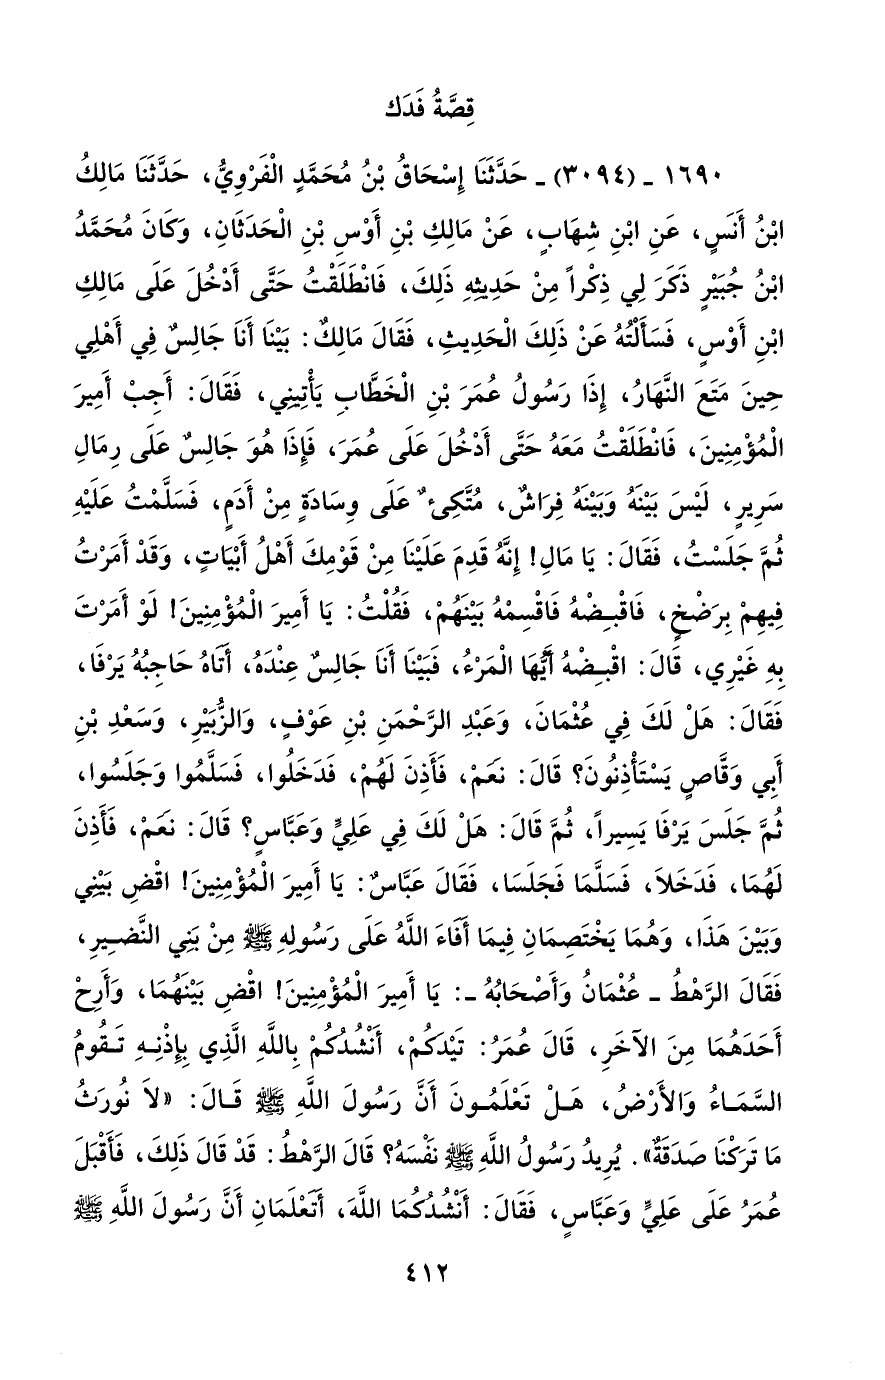 قِصَّةُ فَدَك
١٦٩٠ ـ (٣٠٩٤) ـ حَدَّثَنَا إِسْحَاقُ بْنُ مُحَمَّدٍ الْفَرْوِيُّ، حَدَّثَنَا مَالِكُ
ابْنُ أَنَسٍ، عَنِ ابْنِ شِهَابٍ، عَنْ مَالِكِ بْنِ أَوْسِ بْنِ الْحَدَثَانِ، وَكَانَ مُحَمَّدُ
ابْنُ جُبَيْرٍ ذَكَرَ لِي ذِكْراً مِنْ حَدِيثِهِ ذَلِكَ، فَانْطَلَقْتُ حَتَّى أَدْخُلَ عَلَى مَالِكِ
ابْنِ أَوْسٍ، فَسَأَلْتُهُ عَنْ ذَلِكَ الْحَدِيثِ، فَقَالَ مَالِكٌ: بَيْنَا أَنَا جَالِسٌ فِي أَهْلِي
حِينَ مَتَعَ النَّهَارُ، إِذَا رَسُولُ عُمَرَ بْنِ الْخَطَّابِ يَأْتِينِي، فَقَالَ: أَجِبْ أَمِيرَ
الْمُؤْمِنِينَ، فَانْطَلَقْتُ مَعَهُ حَتَّى أَدْخُلَ عَلَى عُمَرَ، فَإِذَا هُوَ جَالِسٌ عَلَى رِمَالِ
سَرِيرٍ، لَيْسَ بَيْنَهُ وَبَيْنَهُ فِرَاشٌ، مُتَّكِئٌ عَلَى وِسَادَةٍ مِنْ أَدَمٍ، فَسَلَّمْتُ عَلَيْهِ
ثُمَّ جَلَسْتُ، فَقَالَ: يَا مَالِ! إِنَّهُ قَدِمَ عَلَيْنَا مِنْ قَوْمِكَ أَهْلُ أَبْيَاتٍ، وَقَدْ أَمَرْتُ
فِيهِمْ بِرَضْخٍ، فَاقْبِضْهُ فَاقْسِمْهُ بَيْنَهُمْ، فَقُلْتُ: يَا أَمِيرَ الْمُؤْمِنِينَ! لَوْ أَمَرْتَ
بِهِ غَيْرِي، قَالَ: اقْبِضْهُ أَيُّهَا الْمَرْءُ، فَبَيْنَا أَنَا جَالِسٌ عِنْدَهُ، أَتَاهُ حَاجِبُهُ يَرْفَا،
فَقَالَ: هَلْ لَكَ فِي عُثْمَانَ، وَعَبْدِ الرَّحْمَنِ بْنِ عَوْفٍ، وَالزُّبَيْرِ، وَسَعْدِ بْنِ
أَبِي وَقَّاصٍ يَسْتَأْذِنُونَ؟ قَالَ: نَعَمْ، فَأَذِنَ لَهُمْ، فَدَخَلُوا، فَسَلَّمُوا وَجَلَسُوا،
ثُمَّ جَلَسَ يَرْفَا يَسِيراً، ثُمَّ قَالَ: هَلْ لَكَ فِي عَلِيٍّ وَعَبَّاسٍ؟ قَالَ: نَعَمْ، فَأَذِنَ
لَهُمَا، فَدَخَلَا، فَسَلَّمَا فَجَلَسَا، فَقَالَ عَبَّاسٌ: يَا أَمِيرَ الْمُؤْمِنِينَ! اقْضِ بَيْنِي
وَبَيْنَ هَذَا، وَهُمَا يَخْتَصِمَانِ فِيمَا أَفَاءَ اللَّهُ عَلَى رَسُولِهِ ﷺ مِنْ بَنِي النَّضِيرِ،
فَقَالَ الرَّهْطُ ـ عُثْمَانُ وَأَصْحَابُهُ ـ: يَا أَمِيرَ الْمُؤْمِنِينَ! اقْضِ بَيْنَهُمَا، وَأَرِحْ
أَحَدَهُمَا مِنَ الآخَرِ، قَالَ عُمَرُ: تَيْدَكُمْ، أَنْشُدُكُمْ بِاللَّهِ الَّذِي بِإِذْنِهِ تَقُومُ
السَّمَاءُ وَالأَرْضُ، هَلْ تَعْلَمُونَ أَنَّ رَسُولَ اللَّهِ ﷺ قَالَ: «لاَ نُورَثُ
مَا تَرَكْنَا صَدَقَةٌ». يُرِيدُ رَسُولُ اللَّهِ ﷺ نَفْسَهُ؟ قَالَ الرَّهْطُ: قَدْ قَالَ ذَلِكَ، فَأَقْبَلَ
عُمَرُ عَلَى عَلِيٍّ وَعَبَّاسٍ، فَقَالَ: أَنْشُدُكُمَا اللَّهَ، أَتَعْلَمَانِ أَنَّ رَسُولَ اللَّهِ ﷺ
٤١٢